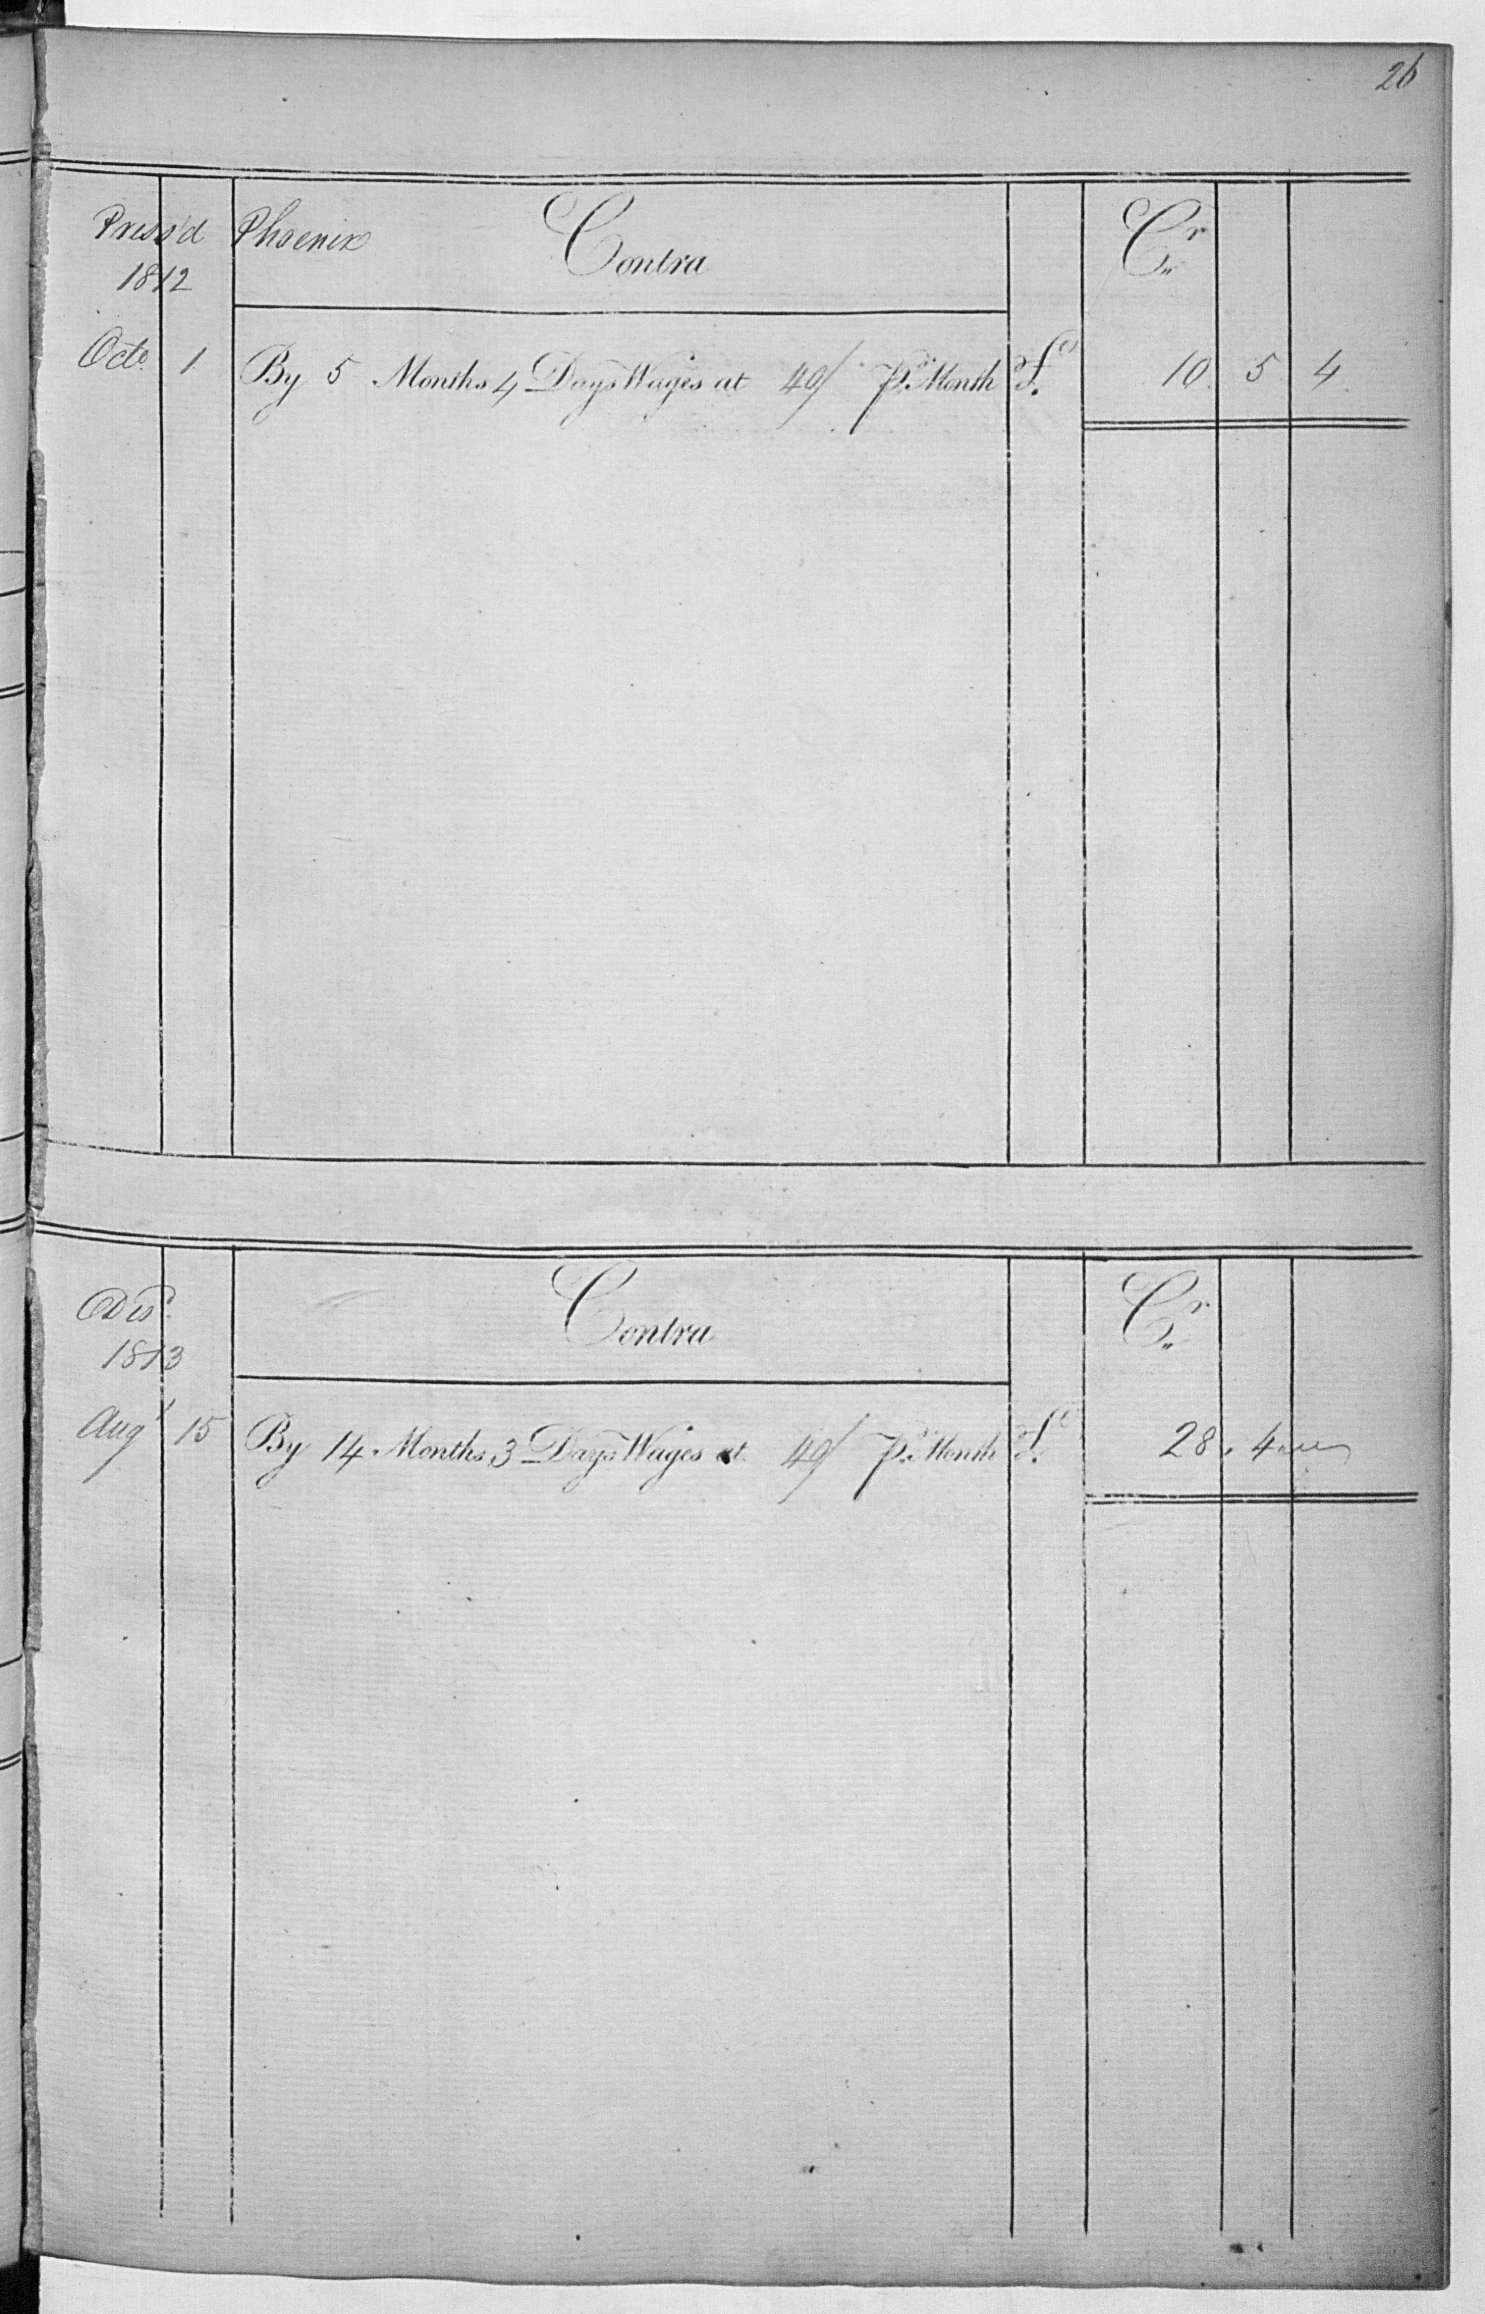 26
Press'd Phoenix Contra Cr
1812
Octr 1 By 5 Months 4 Days Wages at 40/ Pr Month £ 10 5 4
Disd Contra Cr
1813
Augt 15 By 14 Months 3 Days Wages at 40/ Pr Month £ 28 4